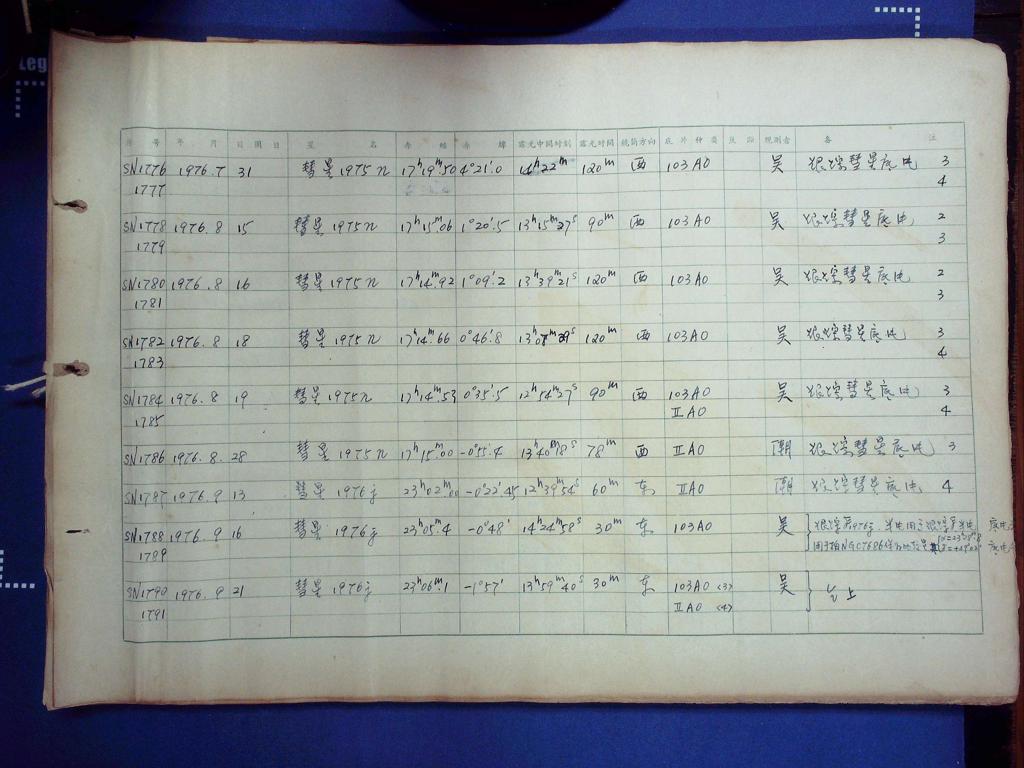 Leg
序 号 年 月 日 星 名 赤 经 赤 纬 露光中间时刻 露光时间 镜筒方向 底片种类 观测者 备 注
SN1776 1976.7 31 彗星1975n 17ʰ19ᵐ.50 4°21′.0 14ʰ22ᵐ 120ᵐ 西 103AO 吴 跟踪彗星底片 3
1777 4
SN1778 1976.8 15 彗星1975n 17ʰ15ᵐ.06 1°20′.5 13ʰ15ᵐ27ˢ 90ᵐ 西 103AO 吴 跟踪彗星底片 2
1779 3
SN1780 1976.8 16 彗星1975n 17ʰ14ᵐ.92 1°09′.2 13ʰ39ᵐ21ˢ 120ᵐ 西 103AO 吴 跟踪彗星底片 2
1781 3
SN1782 1976.8 18 彗星1975n 17ʰ14ᵐ.66 0°46′.8 13ʰ07ᵐ29ˢ 120ᵐ 西 103AO 吴 跟踪彗星底片 3
1783 4
SN1784 1976.8 19 彗星1975n 17ʰ14ᵐ.53 0°35′.5 12ʰ54ᵐ27ˢ 90ᵐ 西 103AO 吴 跟踪彗星底片 3
1785 ⅡAO 4
SN1786 1976.8.28 彗星1975n 17ʰ15ᵐ.00 -0°55′.4 13ʰ40ᵐ18ˢ 78ᵐ 西 ⅡAO 潮 跟踪彗星底片 3
SN1787 1976.9 13 彗星1976j 23ʰ02ᵐ.00 -0°22′45 12ʰ39ᵐ54ˢ 60ᵐ 东 ⅡAO 潮 跟踪彗星底片 4
SN1788 1976.9 16 彗星1976j 23ʰ05ᵐ.4 -0°48′ 14ʰ24ᵐ58ˢ 30ᵐ 东 103AO 吴
1789
SN1790 1976.9 21 彗星1976j 23ʰ06ᵐ.1 -1°57′ 13ʰ59ᵐ40ˢ 30ᵐ 东 103AO (3) 吴 仝上
1791 ⅡAO (4)